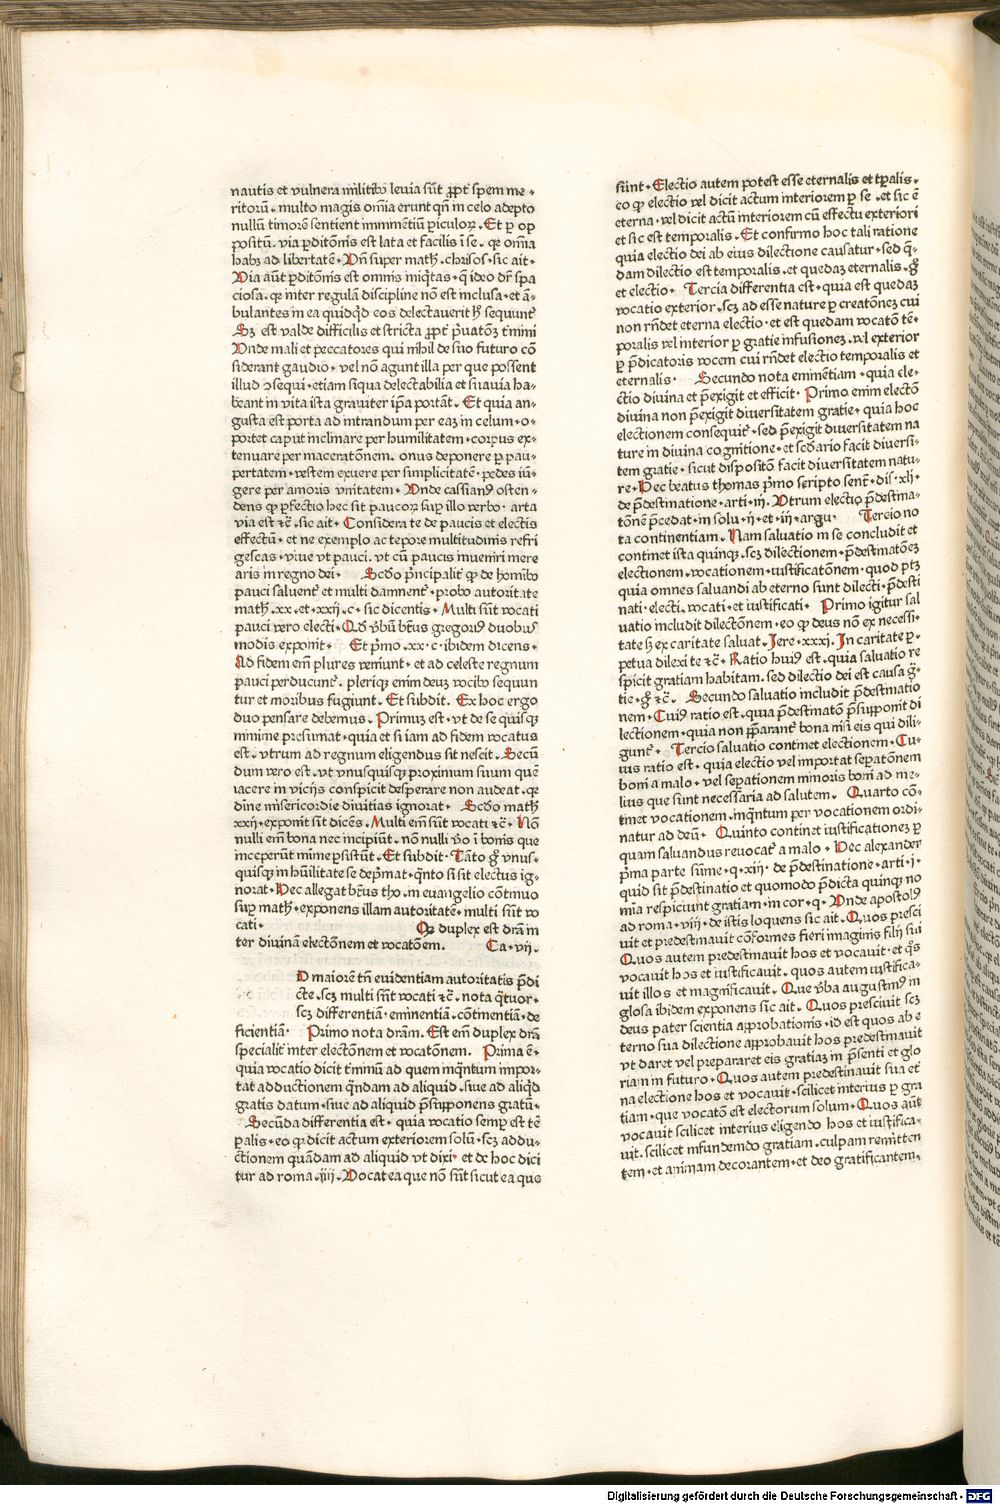 nautis et vulnera militibꝰ leuia sūt ꝓpt̄ spem me-
ritorū. multo magis om̄ia erunt qn̄ in celo adepto
nullū timorē sentient imminentiū piculoꝝ. Et ꝑ op
positū. via ꝑditōnis est lata et facilis i se. qꝛ om̄ia
habꝫ ad libertatē. Vn̄ super math. chrisos. sic ait.
Via aūt ꝑditōnis est omnis iniqͥtas. q̄ ideo dr̄ spa
ciosa. qꝛ inter regulā discipline nō est inclusa. et ā-
bulantes in ea quidqͥd eos delectauerit ħ sequunt̄
Sꝫ est valde difficilis et stricta ꝓpt̄ pͥuatōꝫ t̄mini
Vnde mali et peccatores qui nihil de suo futuro cō
siderant gaudio. vel nō agunt illa per que possent
illud ↄsequi. etiam siqua delectabilia et suauia ha-
beant in vita ista grauiter ip̄a portāt. Et quia an-
gusta est porta ad intrandum per eaꝫ in celum. o-
portet caput inclinare per humilitatem. corpus ex-
tenuare per maceratōnem. onus deponere ꝑ pau-
pertatem. vestem exuere per simplicitatē. pedes iū-
gere per amoris vnitatem. Vnde cassianꝰ osten-
dens qꝙ ꝑfectio hec sit paucoꝝ suꝑ illo verbo. arta
via est ⁊c̄. sic ait. Considera te de paucis et electis
effectū. et ne exemplo ac tepore multitudinis refri
gescas. viue vt pauci. vt cū paucis inueniri mere
aris in regno dei. Scd̄o pͥncipalit̄ qꝙ de hoīnibꝰ
pauci saluent̄ et multi damnent̄. probo autoritate
math. xx. et. xxij. c. sic dicentis. Multi sūt vocati
pauci vero electi. Qd̄ v̄bū bt̄us gregoriꝰ duobꝰ
modis exponit. Et pͥmo. xx. c. ibidem dicens.
Ad fidem em̄ plures veniunt. et ad celeste regnum
pauci perducunt̄. pleriqꝫ enim deuꝫ vocibꝰ sequun
tur et moribus fugiunt. Et subdit. Ex hoc ergo
duo pensare debemus. Primuꝫ est. vt de se quisqꝫ
minime presumat. quia et si iam ad fidem vocatus
est. vtrum ad regnum eligendus sit nescit. Secū
dum vero est. vt vnusquisqꝫ proximum suum quē
iacere in vicijs conspicit desperare non audeat. qꝛ
diuine misericordie diuitias ignorat. Scd̄o math
xxij. exponit sit dicēs. Multi em̄ sūt vocati ⁊c̄. Nō
nulli em̄ bona nec incipiūt. nō nulli v̄o i bonis que
inceperūt minime ꝑsistūt. Et subdit. Tāto gͦ vnus-
quisqꝫ in hūilitate se depͥmat. qͣnto si sit electus ig-
norat. Hec allegat bt̄us tho. in euangelio cōtinuo
suꝑ math. exponens illam autoritatē. multi sūt vo
cati. Qꝙ duplex est dr̄a in
ter diuinā electōnem et vocatōem. Ca. vij.
D maiorē tn̄ euidentiam autoritatis p̄di
cte. scꝫ multi sūt vocati ⁊c̄. nota qͣtuor.
scꝫ differentiā. eminentiā. cōtinentiā. de
ficientiā. Primo nota dr̄am. Est em̄ duplex dr̄a
specialit̄ inter electōnem et vocatōnem. Prima ē.
quia vocatio dicit t̄minū ad quem inqͣntum impor-
tat adductionem qͣndam ad aliquid. siue ad aliqͥd
gratis datum. siue ad aliquid p̄supponens gratiā.
Secūda differentia est. quia vocatio semꝑ est tē
ꝑalis. eo qꝙ dicit actum exteriorem solū. scꝫ addu-
ctionem quādam ad aliquid vt dixi. et de hoc dici
tur ad roma. iiij. Vocat ea que nō sūt sicut ea que
sunt. Electio autem potest esse eternalis et tꝑalis.
eo qꝙ electio vel dicit actum interiorem ꝑ se. et sic ē
eterna. vel dicit actū interiorem cū effectu exteriori
et sic est temporalis. Et confirmo hoc tali ratione
quia electio dei ab eius dilectione causatur. sed q̄-
dam dilectio est temporalis. et quedaꝫ eternalis. gͦ
et electio. Tercia differentia est. quia est quedaꝫ
vocatio exterior. scꝫ ad esse nature ꝑ creatōneꝫ cui
non rn̄det eterna electio. et est quedam vocatō tē-
poralis vel interior ꝑ gratie infusioneꝫ. vel exterior
ꝑ p̄dicatoris vocem cui rn̄det electio temporalis et
eternalis. Secundo nota eminentiam. quia ele-
ctio diuina et p̄exigit et efficit. Primo enim electō
diuina non p̄exigit diuersitatem gratie. quia hoc
electionem consequit̄. sed p̄exigit diuersitatem na
ture in diuina cognitione. et scd̄ario facit diuersi-
tem gratie. sicut dispositō facit diuersitatem natu-
re. Hec beatus thomas pͥmo scripto sent̄. dis. xlj.
de p̄destinatione. arti. iij. Vtrum electio p̄destina-
tōnē p̄cedat. in solu. ij. et. iij. argu. Tercio no
ta continentiam. Nam saluatio in se concludit et
continet ista quinqꝫ. scꝫ dilectionem. p̄destinatōeꝫ
electionem. vocationem. iustificatōnem. quod ptꝫ
quia omnes saluandi ab eterno sunt dilecti. p̄desti
nati. electi. vocati. et iustificati. Primo igitur sal
uatio includit dilectōnem. eo qꝙ deus nō ex necessi-
tate ħ ex caritate saluat. Jere. xxxj. In caritate ꝑ-
petua dilexi te ⁊c̄. Ratio huiꝰ est. quia saluatio re
spicit gratiam habitam. sed dilectio dei est causa gͣ-
tie. gͦ ⁊c̄. Secundo saluatio includit p̄destinatio
nem. Cuiꝰ ratio est. quia p̄destinatō p̄supponit di
lectionem. quia non p̄parant̄ bona nisi eis qui dili-
gunt̄. Tercio saluatio continet electionem. Cu-
ius ratio est. quia electio vel importat seꝑatōnem
boni a malo. vel seꝑationem minoris boni ad me-
lius que sunt necessaria ad salutem. Quarto cō-
tinet vocationem. inqͣntum per vocationem ordi-
natur ad deū. Quinto continet iustificationeꝫ ꝑ
quam saluandus reuocat̄ a malo. Hec alexander
pͥma parte sūme. q. xiij. de p̄destinatione. arti. j.
quid sit p̄destinatio et quomodo p̄dicta quinqꝫ no
mīa respiciunt gratiam. in cor. q. Vnde apostolꝰ
ad roma. viij. de istis loquens sic ait. Quos presci
uit et predestinauit cōformes fieri imaginis filij sui
Quos autem predestinauit hos et vocauit. et qͦs
vocauit hos et iustificauit. quos autem iustifica-
uit illos et magnificauit. Que v̄ba augustinꝰ in
glosa ibidem exponens sic ait. Quos presciuit scꝫ
deus pater scientia approbationis. id est quos ab e
terno sua dilectione approbauit hos predestinauit
vt daret vel prepararet eis gratiaꝫ in p̄senti et glo
riam in futuro. Quos autem predestinauit sua et̄
na electione hos et vocauit. scilicet interius ꝑ gra
tiam. que vocatō est electorum solum. Quos aūt
vocauit scilicet interius eligendo hos et iustifica-
uit. scilicet infundendo gratiam. culpam remitten
tem. et animam decorantem. et deo gratificantem.
Digitalisierung gefördert durch die Deutsche Forschungsgemeinschaft - DFG